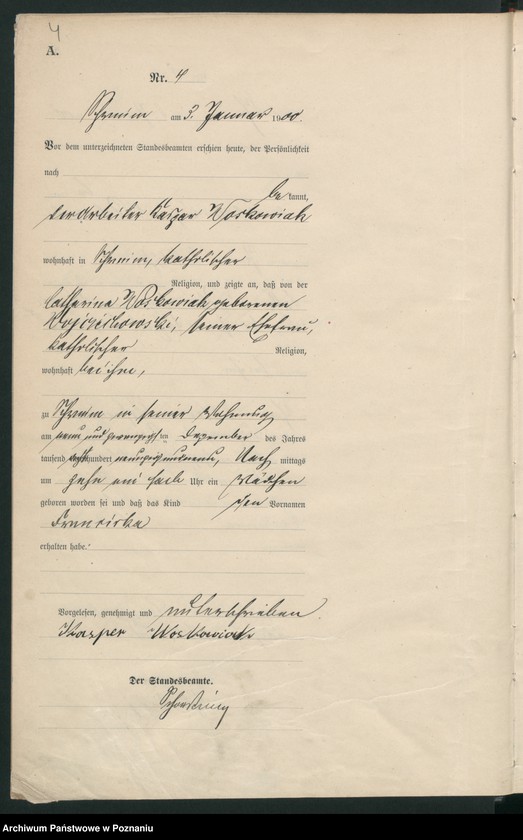 4
A.
Nr. 4
Schrimm am 3. Januar 1900.
Vor dem unterzeichneten Standesbeamten erschien heute, der Persönlichkeit
nach
be kannt,
der Arbeiter Kaspar Woskowiak
wohnhaft in Schrimm, katholischer
Religion, und zeigte an, daß von der
Catharina Woskowiak geborenen
Wojciechowski, seiner Ehefrau,
katholischer Religion,
wohnhaft bei ihm,
zu Schrimm in seiner Wohnung
am neun und zwanzigsten Dezember des Jahres
tausend achthundert neunzig und neun, Nach mittags
um zehn ein halb Uhr ein Mädchen
geboren worden sei und daß das Kind den Vornamen
Franciska
erhalten habe.
Vorgelesen, genehmigt und unterschrieben.
Kasper Woskowiak
Der Standesbeamte.
Archiwum Państwowe w Poznaniu